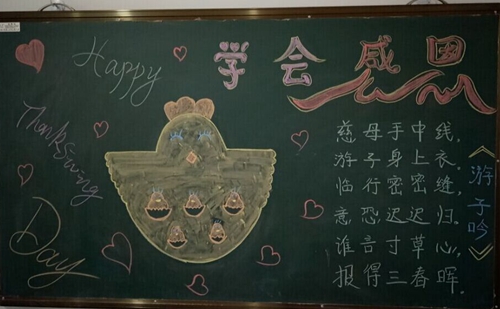 Happy
Thanksgiving
Day
学会感恩
《游子吟》
慈母手中线,
游子身上衣。
临行密密缝,
意恐迟迟归。
谁言寸草心,
报得三春晖。